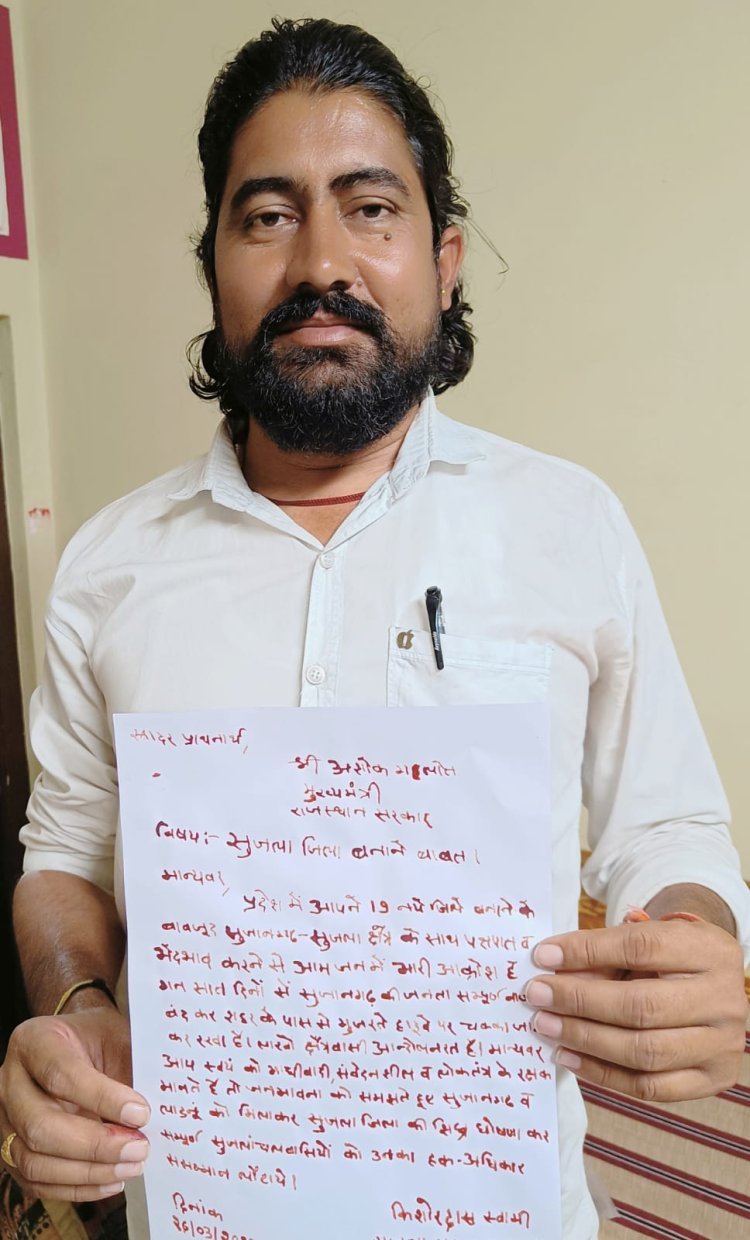 सादर प्राथनार्थ,
श्री अशोक गहलोत
मुख्यमंत्री
राजस्थान सरकार
विषय:- सुजला जिला बनाने बाबत।
मान्यवर,
प्रदेश में आपने 19 नये जिले बनाने के
बावजूद सुजानगढ-सुजला क्षेत्र के साथ पक्षपात व
भेदभाव करने से आम जन में भारी आक्रोश हैं
गत सात दिनों से सुजानगढ की जनता सम्पूर्ण
बंद कर शहर के पास से गुजरते हाइवे पर चक्का जा
कर रखा हैं। लाखो क्षैत्रवासी आन्दोलनरत हैं। मान्यवर
आप स्वयं को गाधीवादी, संवेदनशील व लोकतंत्र के रक्षक
मानते हैं तो जनभावना को समझते हुए सुजानगढ व
लाडनू को मिलाकर सुजला जिला की घोषणा कर
सम्पूर्ण सुजलांचलवासियों को उनका हक-अधिकार
ससम्मान लौटाये।
दिनांक
२६/03/20
किशोरदास स्वामी